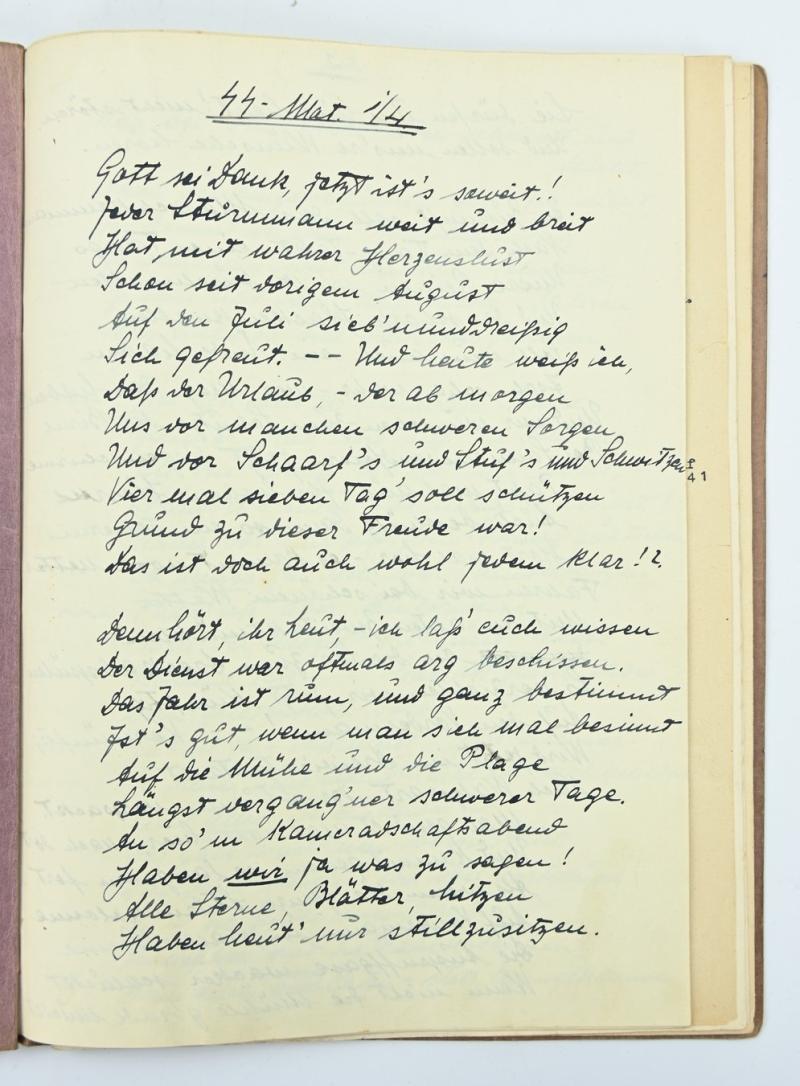 44-Mat. 1/4
Gott sei Dank, jetzt ist's soweit!!
Jeder Sturmmann weit und breit
Hat mit wahrer Herzenslust
Schon seit vorigem August
Auf den Juli sieb'nunddreißig
Sich gefreut. -- Und heute weiß ich,
Daß der Urlaub, - der ab morgen
Uns vor manchen schweren Sorgen
Und vor Schaarf's und Stuf's und Schwitzen
Vier mal sieben Tag' soll schützen
Grund zu dieser Freude war!
Das ist doch auch wohl jedem klar!?
Denn hört, ihr Leut, - ich laß' euch wissen
Der Dienst war oftmals arg beschissen.
Das Jahr ist rum, und ganz bestimmt
Ist's gut, wenn man sich mal besinnt
Auf die Mühe und die Plage
Längst vergang'ner schwerer Tage.
An so'm Kameradschaftsabend
Haben wir ja was zu sagen!
Alle Sterne, Blätter, Litzen
Haben heut' nur stillzusitzen.
41